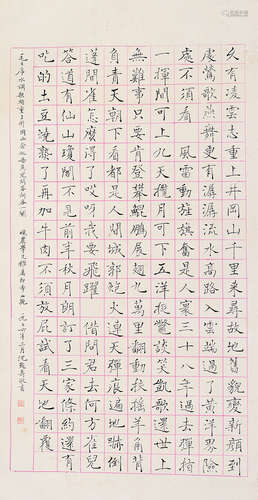 久有凌雲志重上井岡山千里來尋故地舊貌變新顏到
處鶯歌燕舞更有潺潺流水高路入雲端過了黃洋界險
處不須看 風雷動旌旗奮是人寰三十八年過去彈指
一揮間可上九天攬月可下五洋捉鱉談笑凱歌還世上
無難事只要肯登攀 鯤鵬展翅九萬里翻動扶搖羊角背
負青天朝下看都是人間城郭炮火連天彈痕遍地嚇倒
蓬間雀怎麼得了哎呀我要飛躍 借問君去何方雀兒
答道有仙山瓊閣不見前年秋月朗訂了三家條約還有
吃的土豆燒熟了再加牛肉不須放屁試看天地翻覆
毛主席水調歌頭重上井岡山念奴嬌鳥兒問答